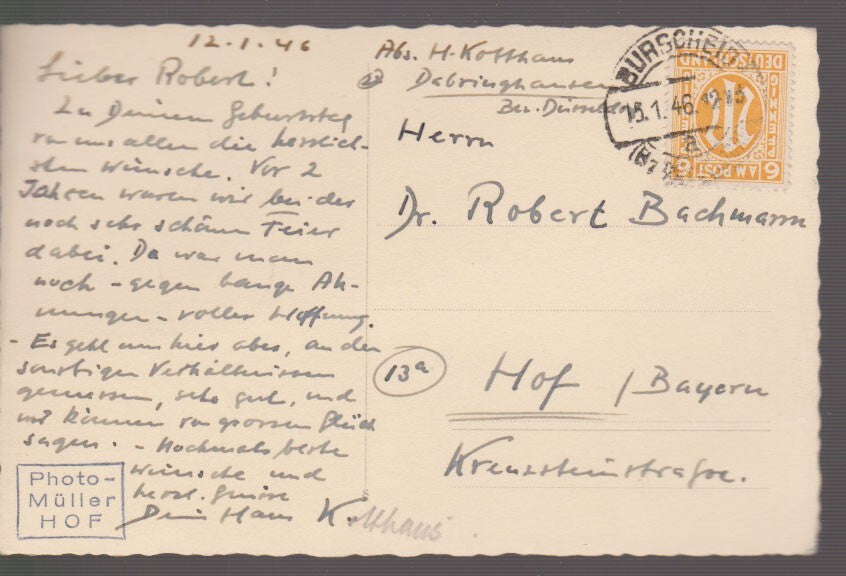 12.1.46
Lieber Robert!
Zu Deinem Geburtstag
von uns allen die herzlich-
sten Wünsche. Vor 2
Jahren waren wir bei der
noch sehr schönen Feier
dabei. Da war man
noch - gegen bange Ah-
nungen - voller Hoffnung.
- Es geht uns hier aber, an den
sonstigen Verhältnissen
gemessen, sehr gut, und
wir können von grossem Glück
sagen. - Nochmals beste
Wünsche und
herzl. Grüsse
Dein Hans K.
Kotthaus
Photo-
Müller
HOF
Abs. H. Kotthaus
Dabringhausen
Bez. Düsseldorf
BURSCHEID
15.1.46.12
DEUTSCHLAND
PFENNIG
AM POST
6 6
Herrn
Dr. Robert Bachmann
13a
Hof / Bayern
Kreuzsteinstraße.